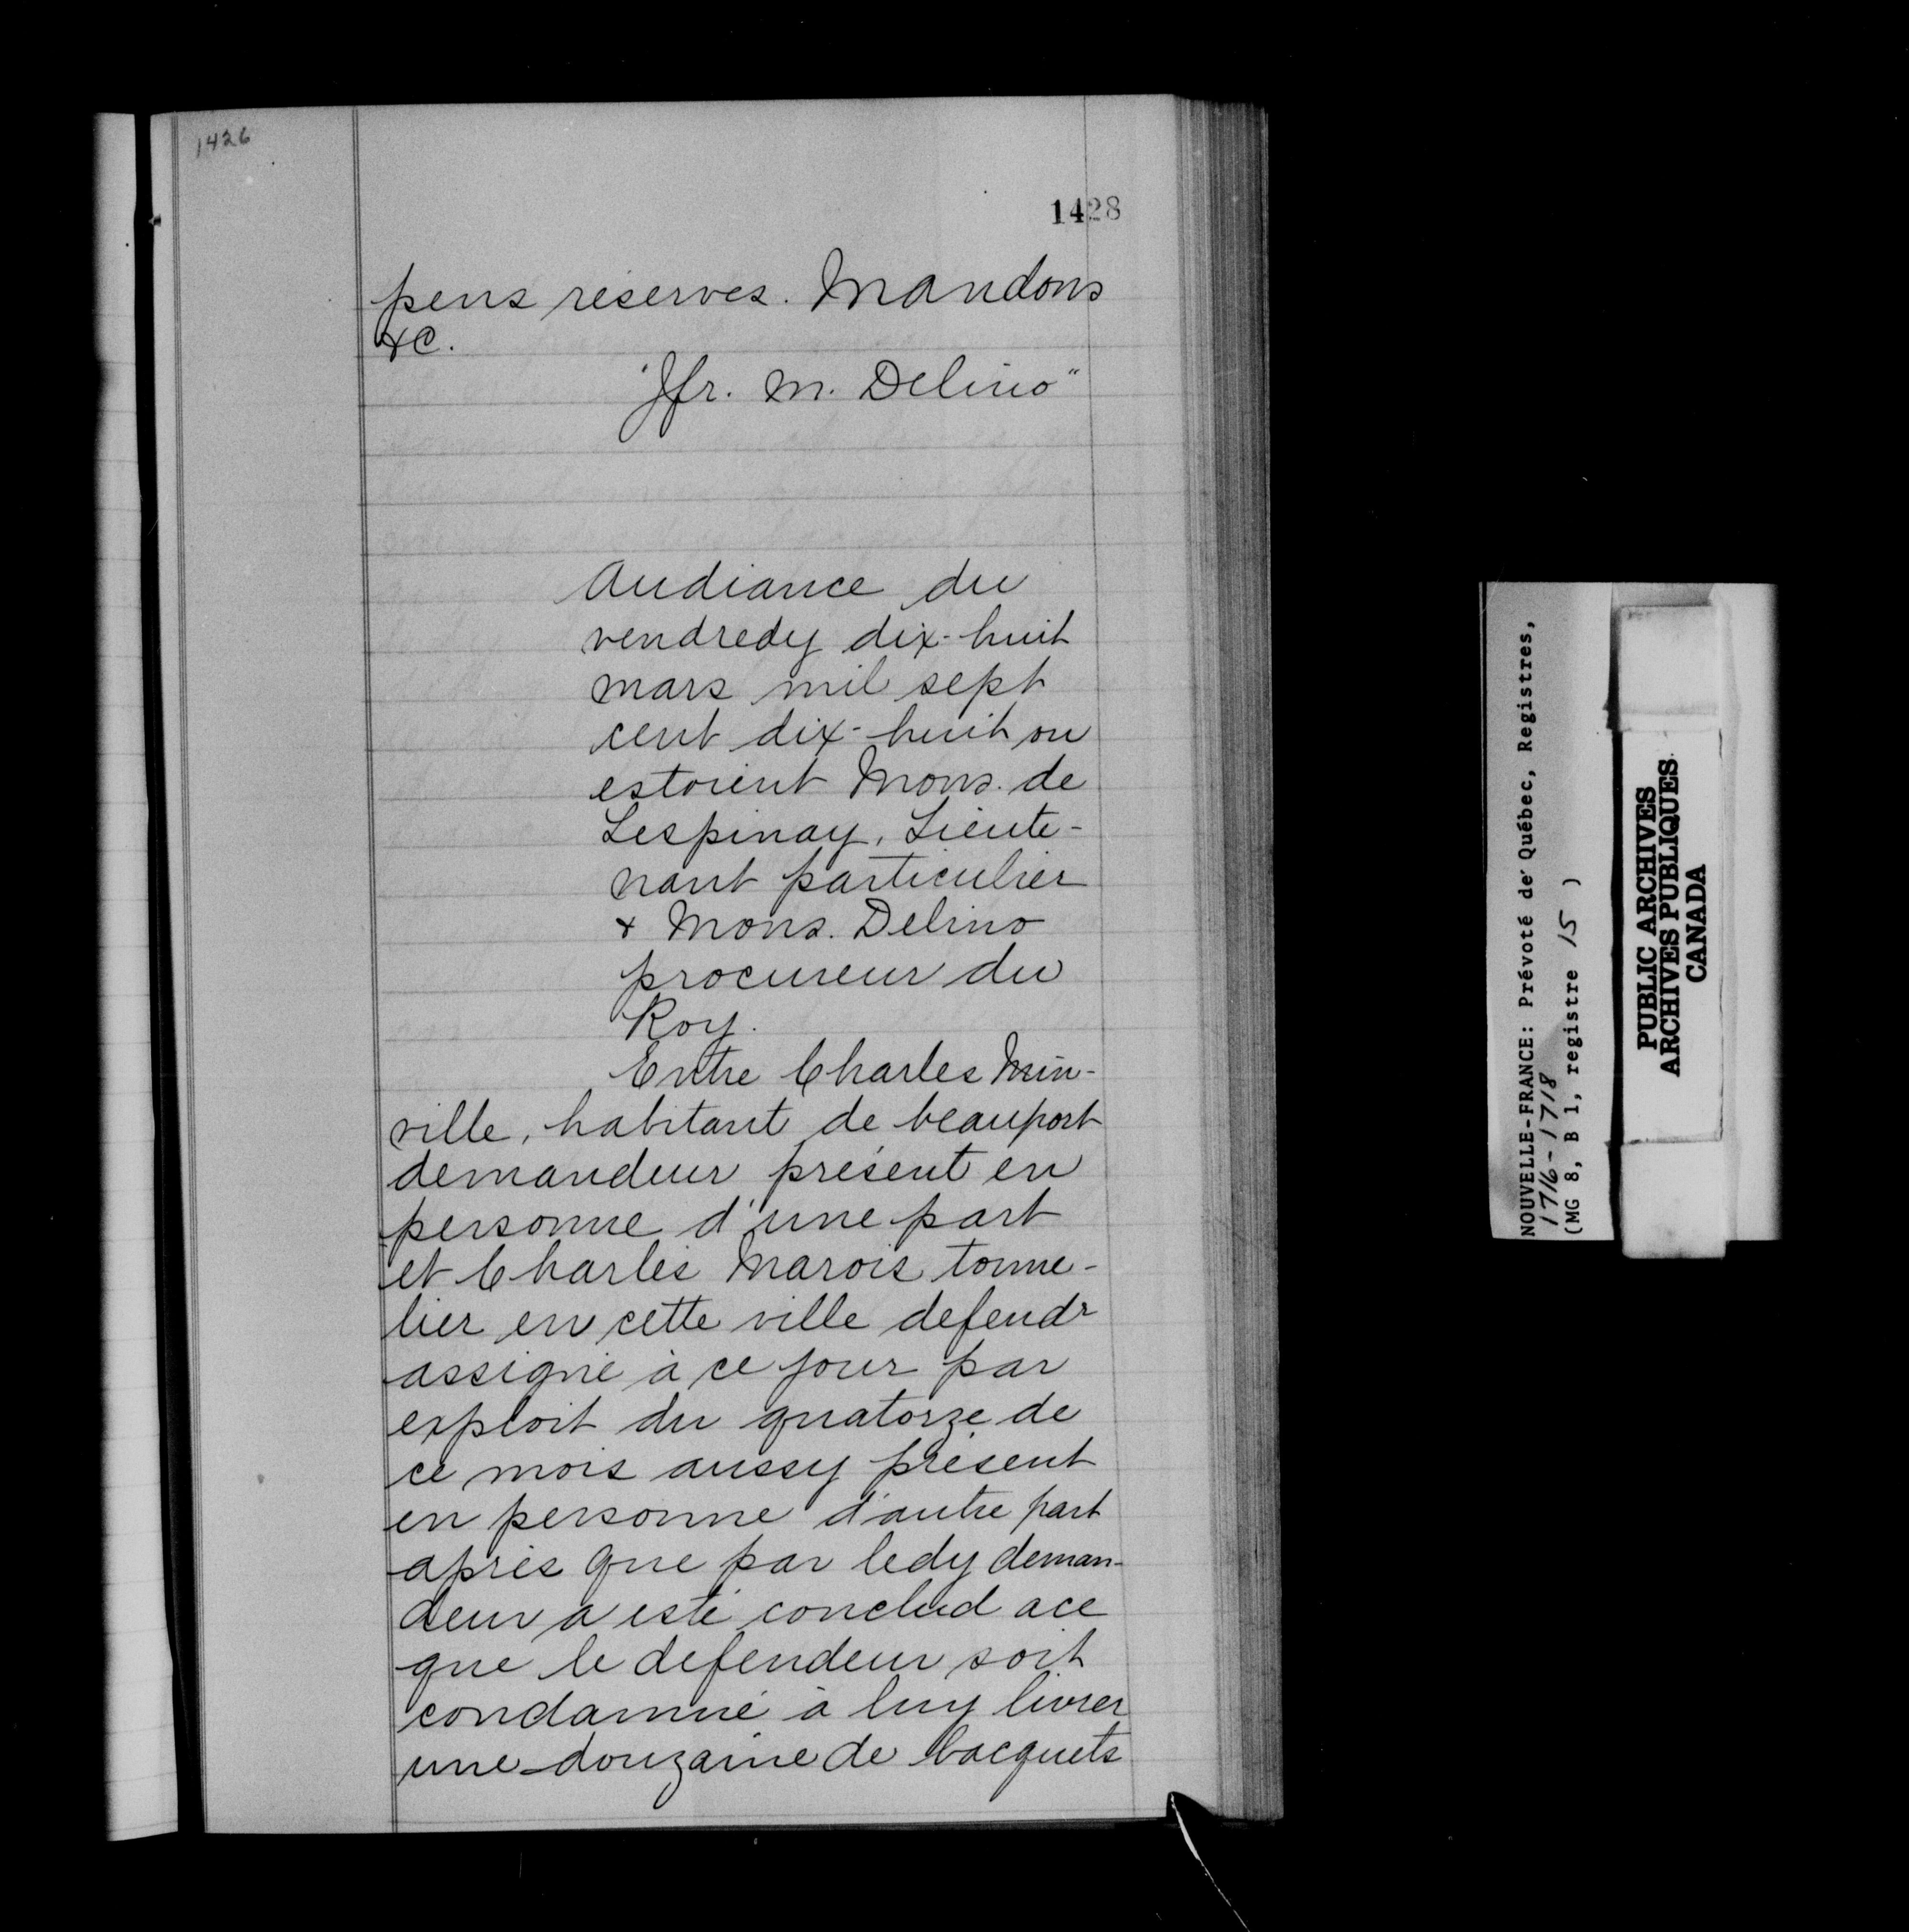 1426
1428
pens réserves. Mandons
&c.
"Jfr. M. Delino"
Audiance du
vendredy dix-huit
mars mil sept
cent dix-huit ou
estoient Mons. de
Lespinay, Lieute-
nant particulier
& Mons. Delino
procureur du
Roy.
Entre Charles Min-
ville, habitant de beauport
demandeur présent en
personne d'une part
et Charles Marois tonne-
lier en cette ville defendr
assigné à ce jour par
exploit du quatorze de
ce mois aussy présent
en personne d'autre part
après que par ledy deman-
deur a esté conclud ace
que le defendeur soit
condamné à luy livrer
une douzaine de bacquets
NOUVELLE-FRANCE: Prévoté de Québec, Registres,
1716-1718
(MG 8, B 1, registre 15 )
PUBLIC ARCHIVES
ARCHIVES PUBLIQUES
CANADA